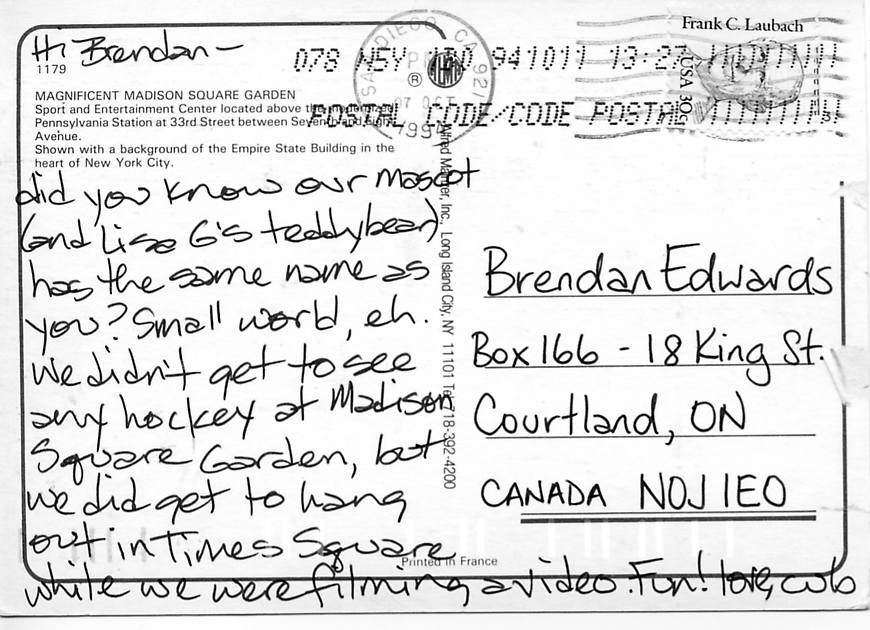 Hi Brendan –
1179
MAGNIFICENT MADISON SQUARE GARDEN
Sport and Entertainment Center located above the
Pennsylvania Station at 33rd Street between Seventh and Eighth
Avenue.
Shown with a background of the Empire State Building in the
heart of New York City.
did you know our mascot
(and Lisa G's teddybear)
has the same name as
you? Small world, eh.
We didn't get to see
any hockey at Madison
Square Garden, but
we did get to hang
out in Times Square
while we were filming a video. Fun! love, cub
Printed in France
Long Island City, NY 11101 Tel. 718-392-4200
SAN DIEGO CA 921
PM
07 OCT
1994
078 941011 13:27
POSTAL CODE/CODE POSTAL
Frank C. Laubach
USA 30c
Brendan Edwards
Box 166 - 18 King St.
Courtland, ON
CANADA N0J 1E0